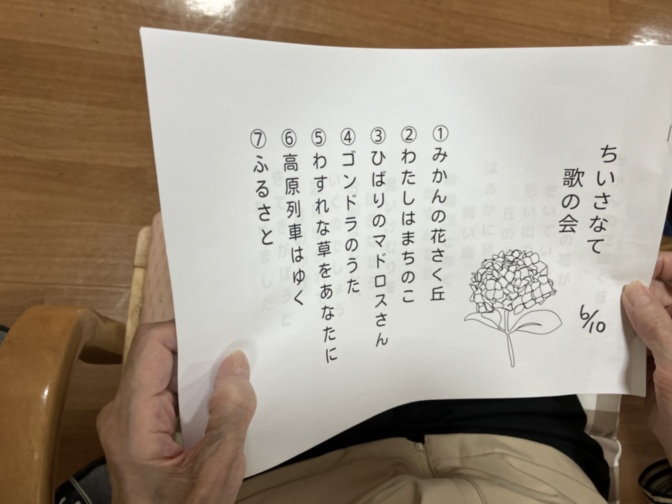 ちいさなて
歌の会
6/10
①みかんの花さく丘
②わたしはまちのこ
③ひばりのマドロスさん
④ゴンドラのうた
⑤わすれな草をあなたに
⑥高原列車はゆく
⑦ふるさと